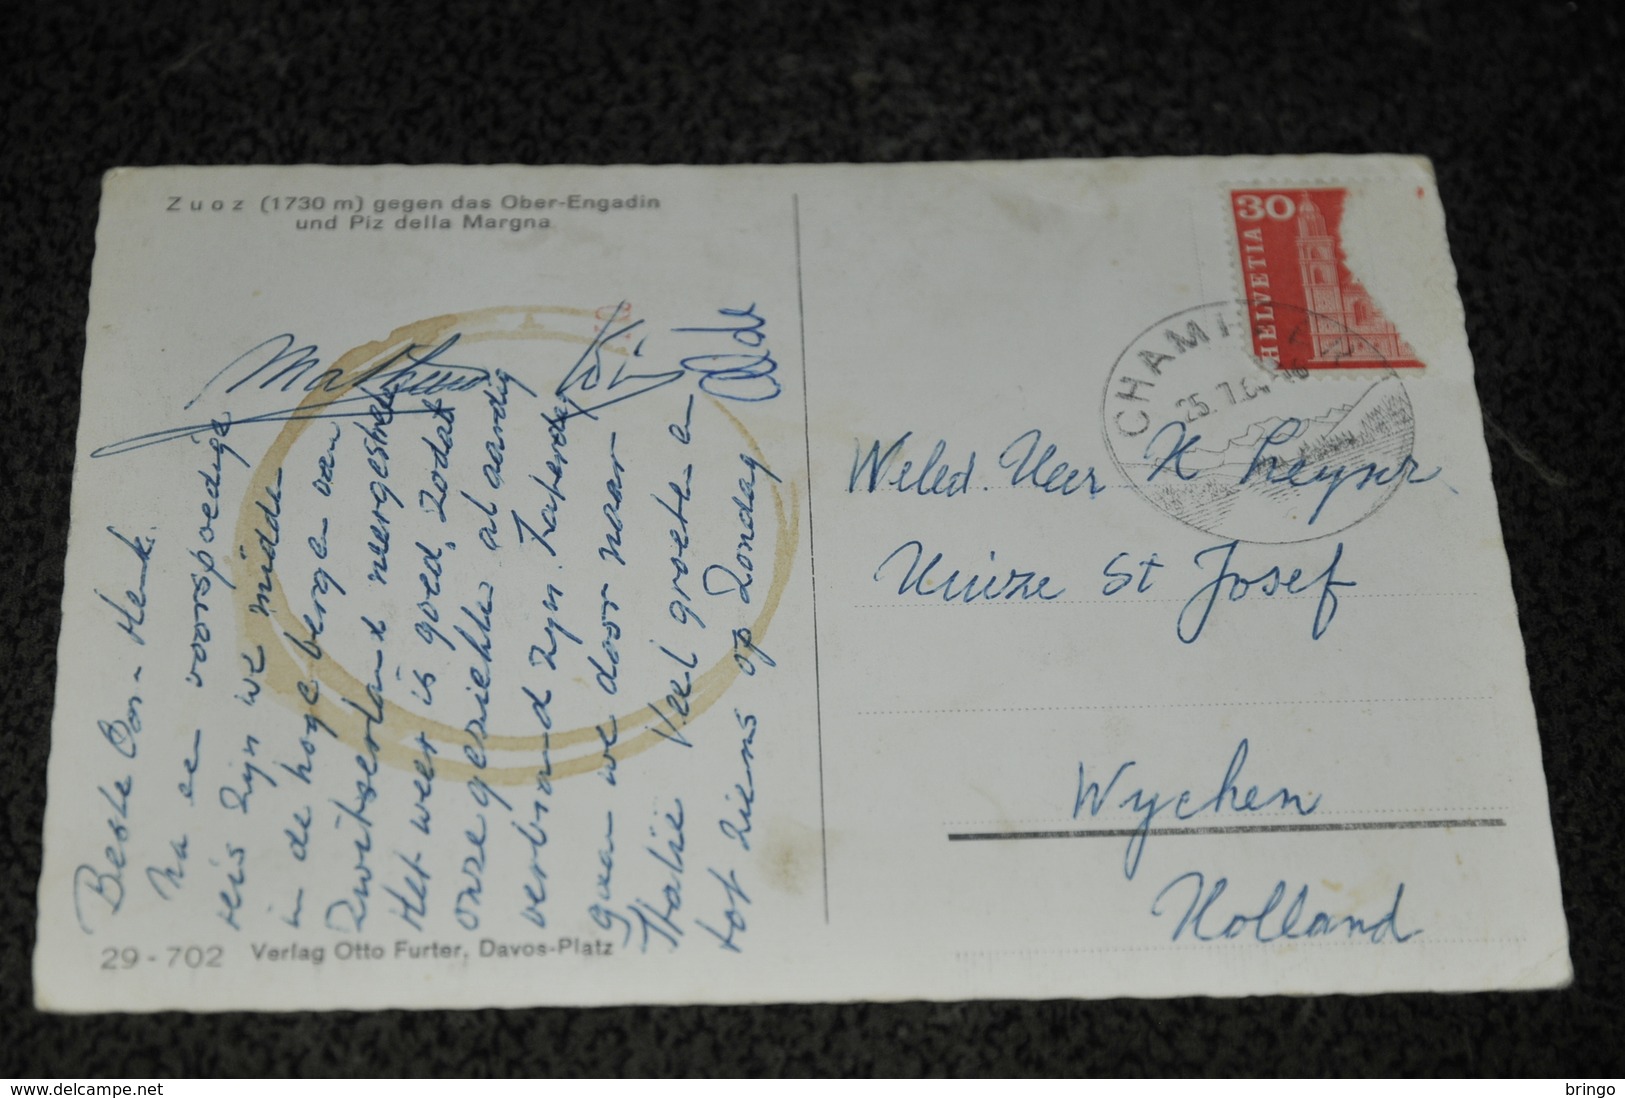 Zuoz (1730 m) gegen das Ober-Engadin
und Piz della Margna
Beste Bas - Henk.
Na en voorspoedige
reis zijn we midden
in de hoge bergen van
Zwitserland neergestreken
Het weer is goed, zodat
onze gezichten al aardig
verbrand zijn. Zaterdag
gaan we door naar
Italië Veel groeten en
tot ziens op zondag
29 - 702 Verlag Otto Furter, Davos-Platz
30
HELVETIA
25. 7. 6
Weled. Heer H Leyser
Huize St Josef
Wychen
Holland
delcampe.net
bringo